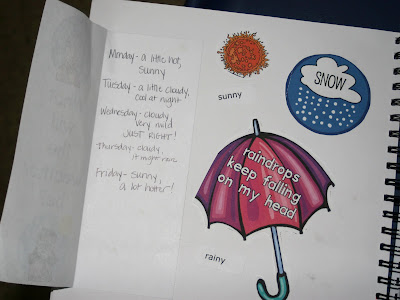 Monday - a little hot,
sunny
Tuesday - a little cloudy,
cool at night
Wednesday - cloudy,
very mild
JUST RIGHT!
Thursday - cloudy,
it might rain
Friday - sunny,
a lot hotter!
sunny
SNOW
raindrops
keep falling
on my head
rainy